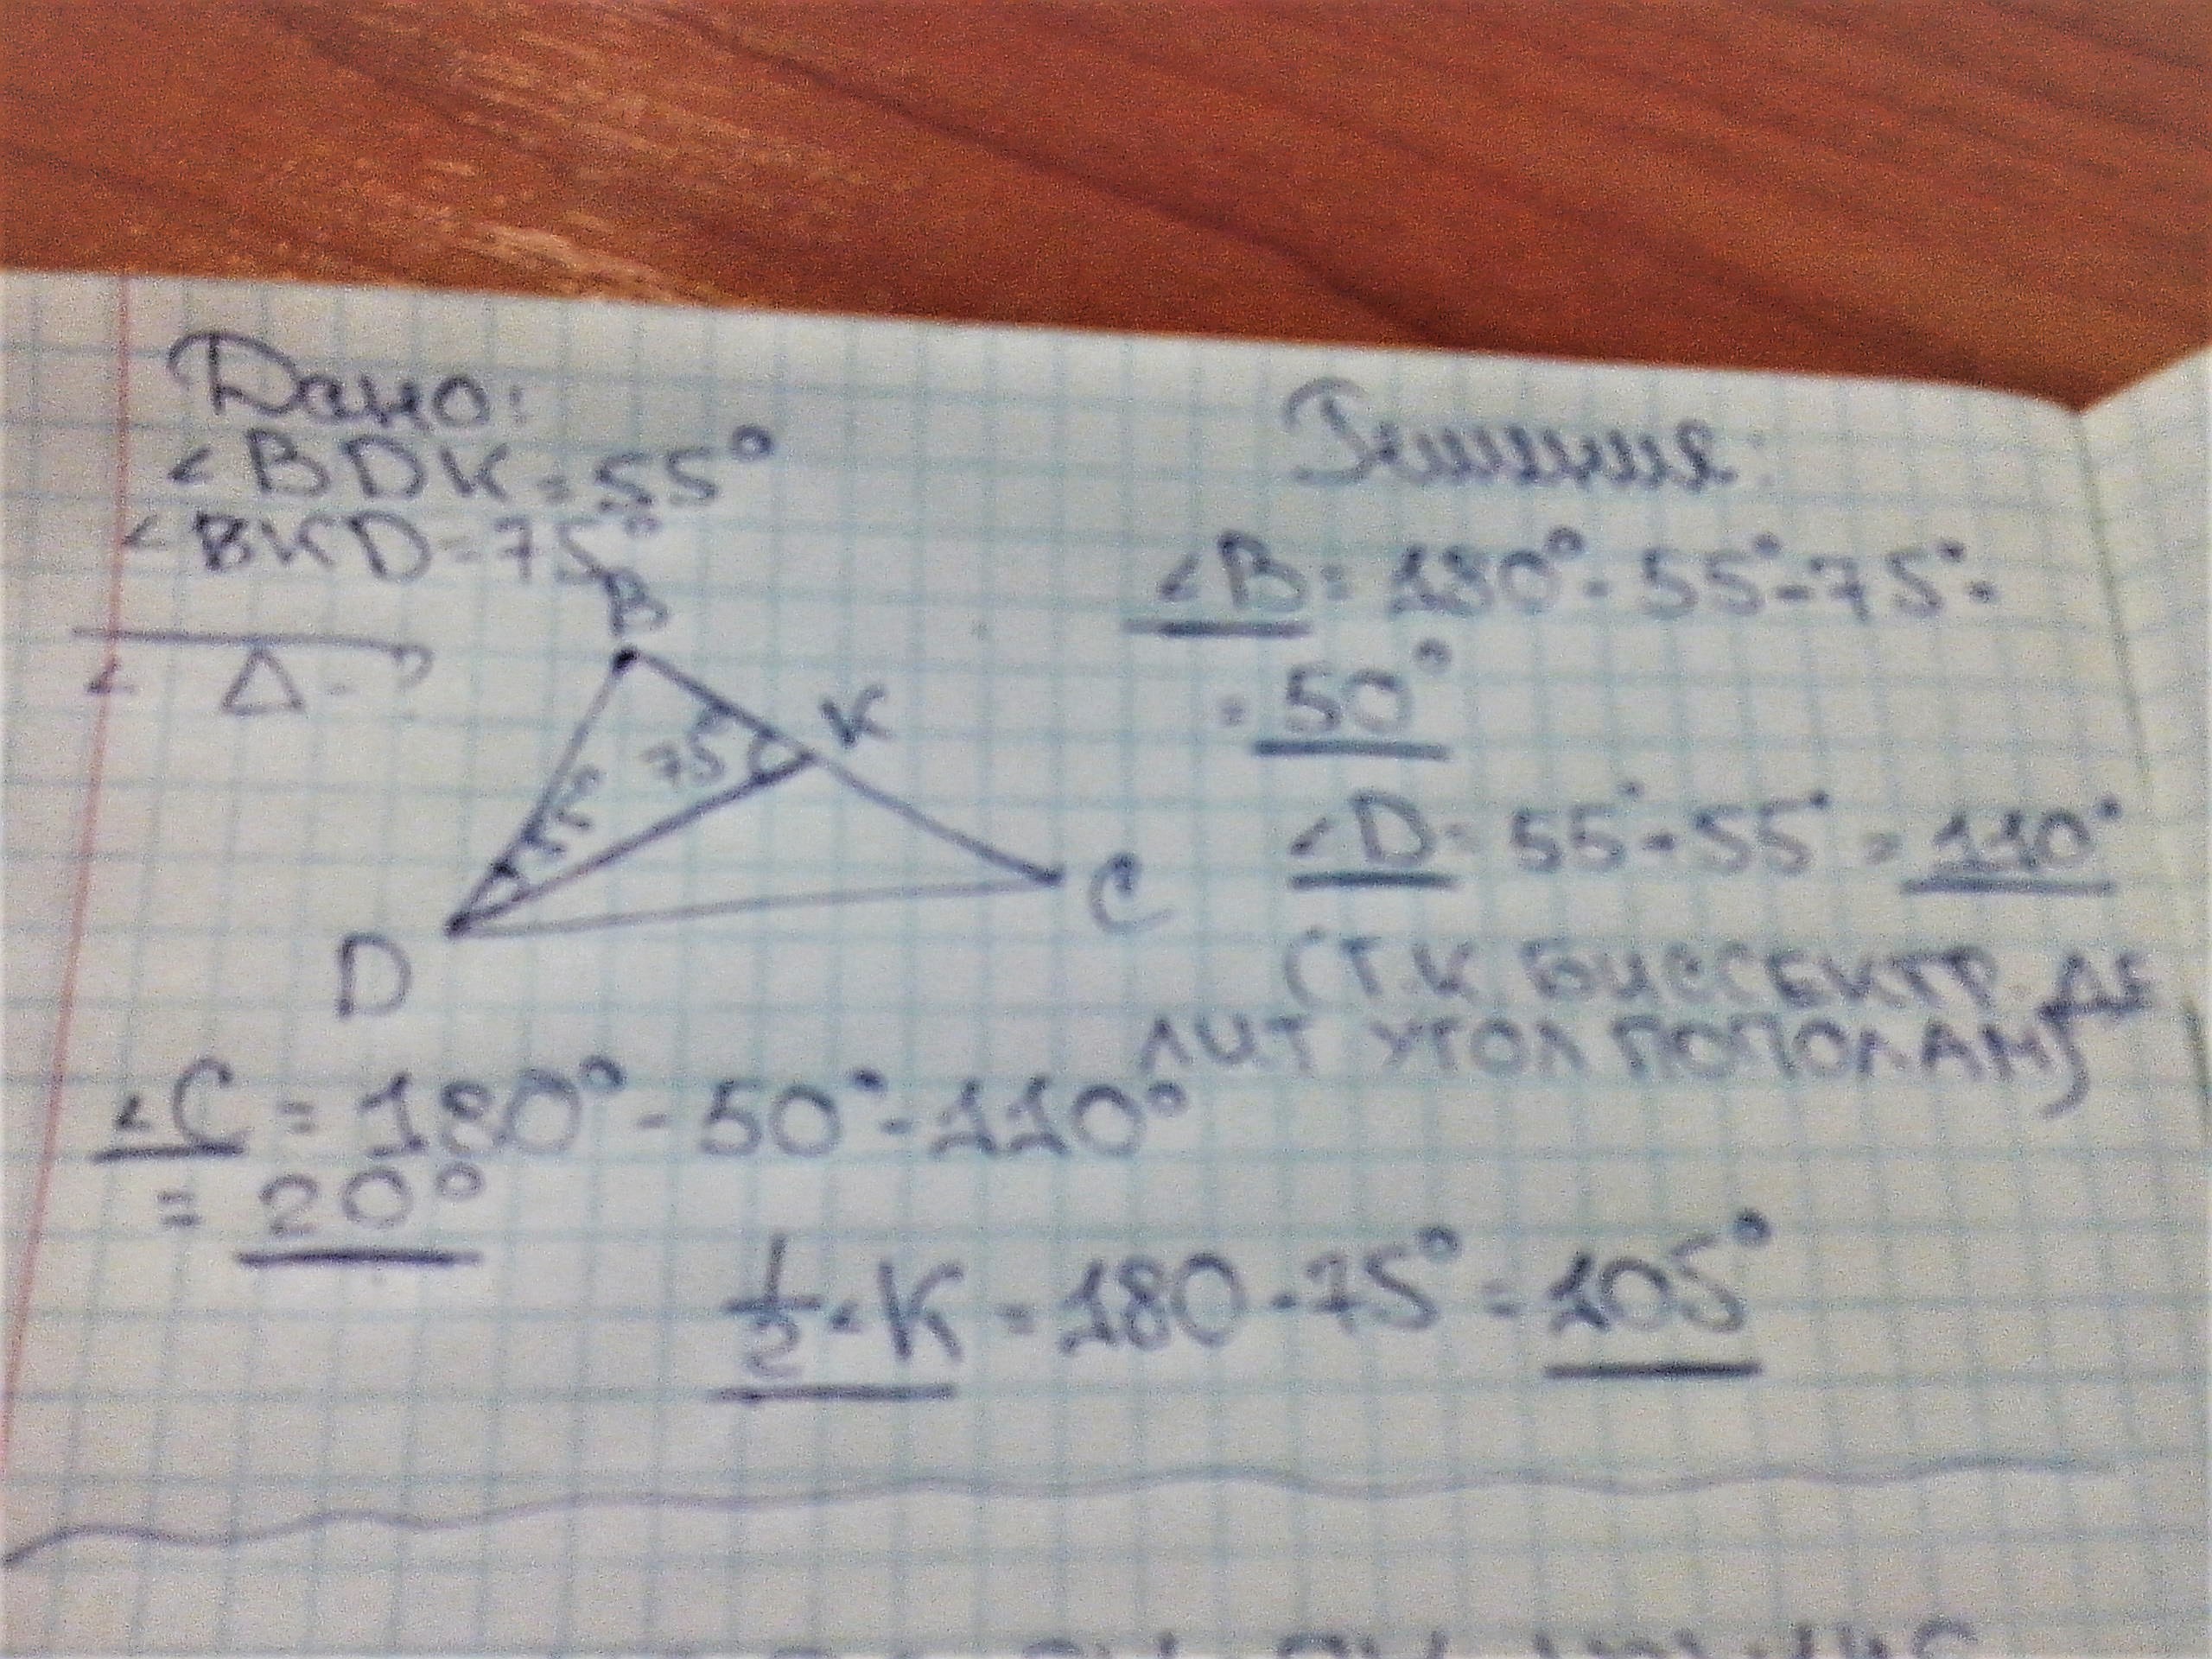 Дано:
∠BDK=55°
∠BKD=75°
∠ Δ-?
B
K
75
55
D
C
Решения:
∠B=180°-55°-75°=
=50°
∠D=55°+55°=110°
(Т.К БИССЕКТР. ДЕ
ЛИТ УГОЛ ПОПОЛАМ)
∠C=180°-50°-110°
=20°
1/2∠K=180-75°=105°